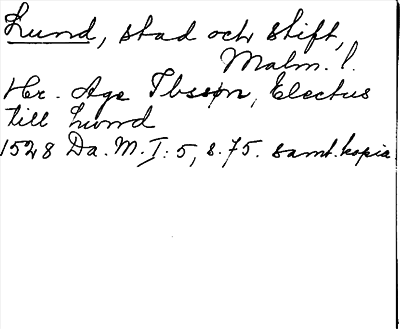 Lund, stad och stift,
Malm. l.
Hr. Age Ibssøn, Electus
till Lund
1528 Da. M. I: 5, s. 75. samt. kopia